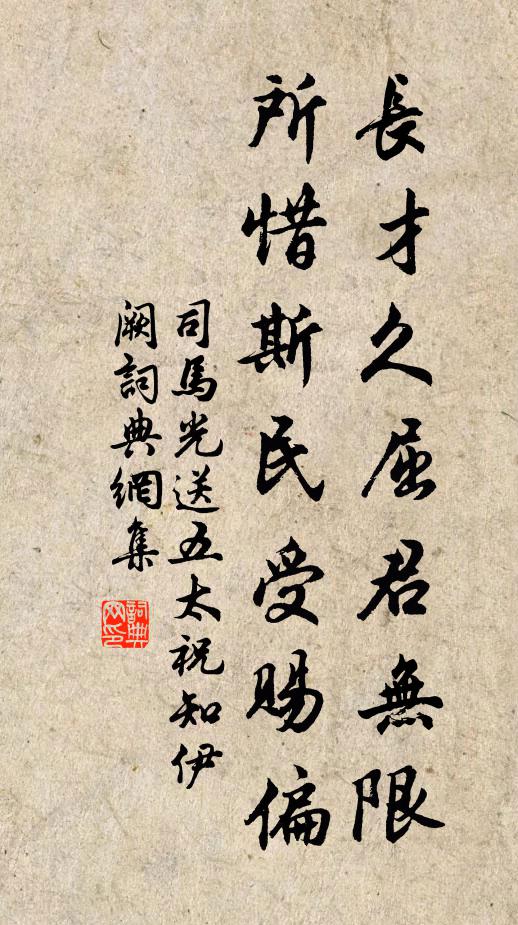 長才久屈君無限
所惜斯民受賜偏
司馬光送五太祝知伊
闕詞典網集
詞典
网印